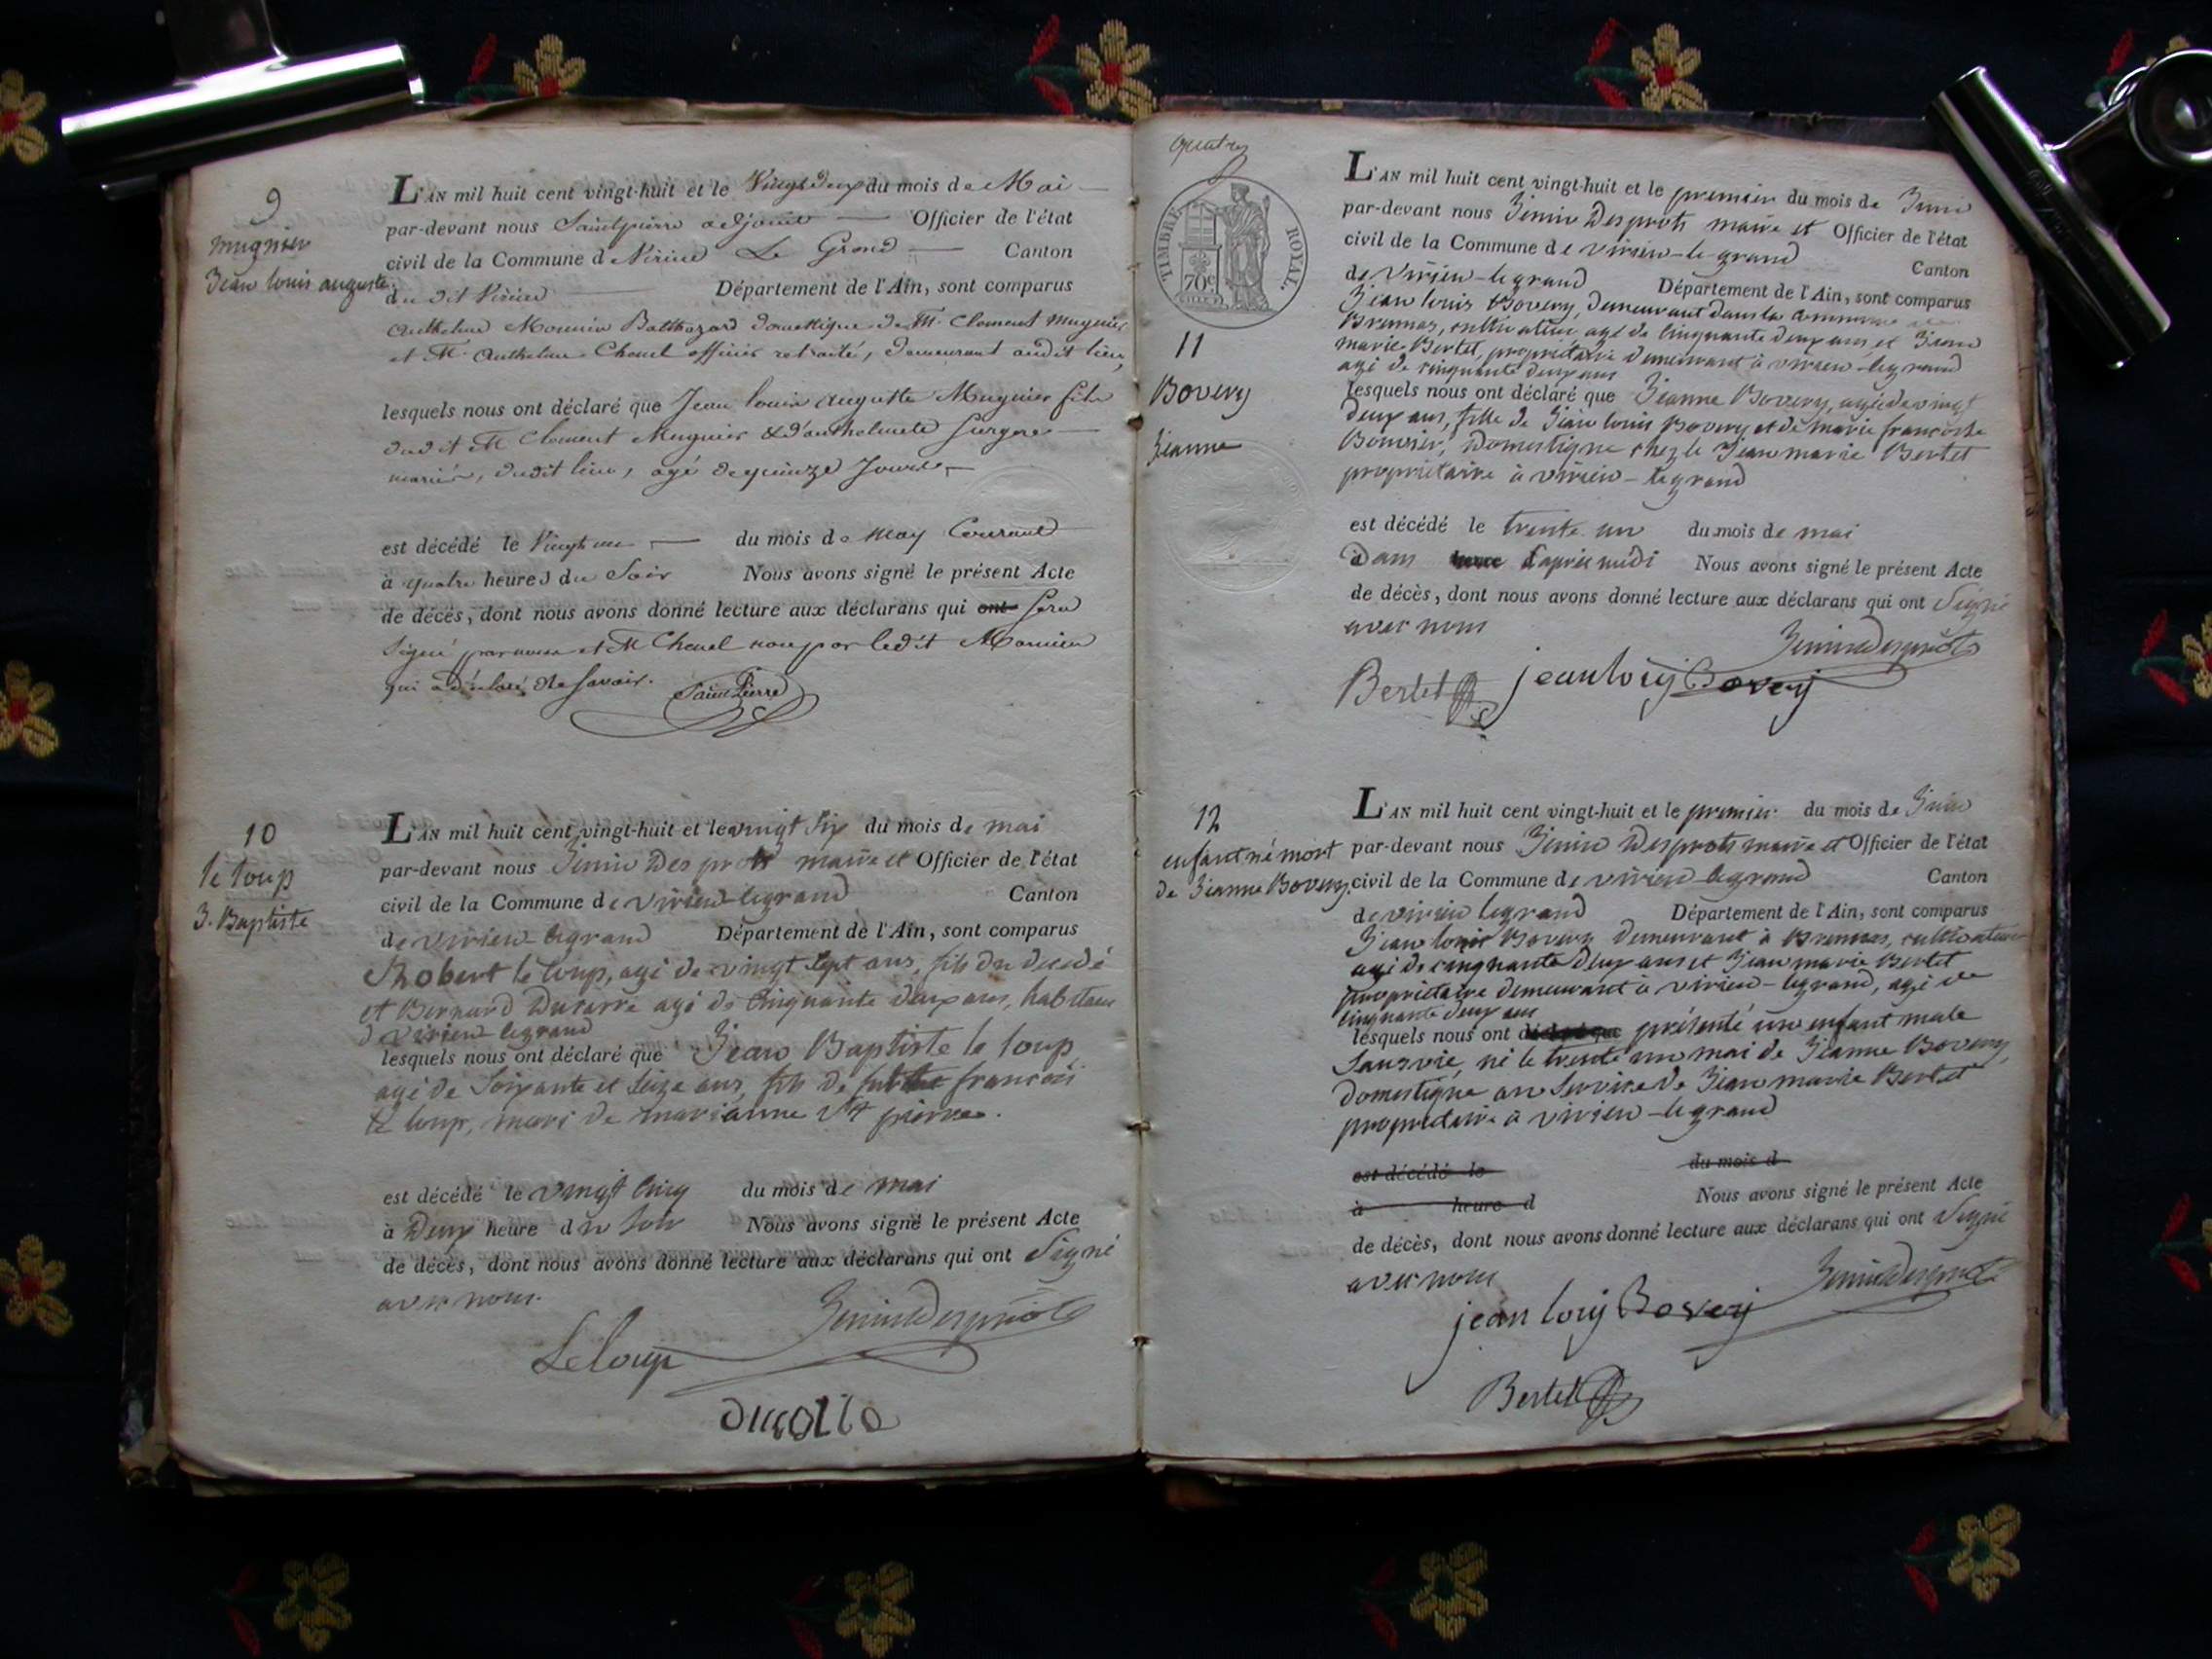 9
mugnier
Jean louis auguste.
L'AN mil huit cent vingt-huit et le Vingt deux du mois de Mai
par-devant nous Saintpierre adjoint Officier de l'état
civil de la Commune d Virieu Le Grand Canton
du dit Virieu Département de l'Ain, sont comparus
Anthelme Monnier Balthazard domestique de M. Clement Mugnier
et M. Anthelme Chenel officier retraité, demeurant audit lieu,
lesquels nous ont déclaré que Jean louis Auguste Mugnier fils
dudit M Clement Mugnier & d'anthelmete
mariés, dudit lieu, agé de quinze Jours,
est décédé le Vingt un du mois de May Courant
à quatre heures du Soir Nous avons signé le présent Acte
de décès, dont nous avons donné lecture aux déclarans qui ont sera
Signé par nous et M Chenel non par ledit Monnier
qui a déclaré ne Savoir. Saint Pierre
10
le loup
J. Baptiste
L'AN mil huit cent vingt-huit et le vingt six du mois de mai
par-devant nous Jenin Desprots maire et Officier de l'état
civil de la Commune de virieu-legrand Canton
de virieu-legrand Département de l'Ain, sont comparus
Robert le loup, agé de vingt sept ans, fils du decedé
et Bernard agé de cinquante deux ans, habitans
d virieu legrand
lesquels nous ont déclaré que Jean Baptiste le loup
agé de Soixante et Seize ans, fils de françois
le loup, mari de marianne St pierre.
est décédé le vingt cinq du mois de mai
à Deux heure du soir Nous avons signé le présent Acte
de décès, dont nous avons donné lecture aux déclarans qui ont Signé
avec nous.
Jenin Desprots
Leloup
quatre
TIMBRE ROYAL.
70c
11
Bovery
Jeanne
L'AN mil huit cent vingt-huit et le premier du mois de Juin
par-devant nous Jenin Desprots maire et Officier de l'état
civil de la Commune de virieu-le-grand Canton
de Virieu-legrand Département de l'Ain, sont comparus
Jean louis Bovery, demeurant dans la commune de
Brennas, cultivateur agé de cinquante deux ans, et Jean
marie Bertet, propriétaire demeurant à virieu-legrand
agé de cinquante deux ans
lesquels nous ont déclaré que Jeanne Bovery, agée de vingt
deux ans, fille de Jean louis Bovery et de marie francoise
Bonnier, Domestique chez le Jean marie Bertet
propriétaire à virieu-legrand
est décédé le trente un du mois de mai
Dans d'après midi Nous avons signé le présent Acte
de décès, dont nous avons donné lecture aux déclarans qui ont Signé
avec nous
Jenin Desprots
Bertet jean loüy Bovery
12
enfant né mort
de Jeanne Bovery.
L'AN mil huit cent vingt-huit et le premier du mois de Juin
par-devant nous Jenin Desprots maire et Officier de l'état
civil de la Commune de virieu legrand Canton
de virieu legrand Département de l'Ain, sont comparus
Jean louis Bovery demeurant à Brennas, cultivateur
agé de cinquante deux ans et Jean marie Bertet
propriétaire demeurant à virieu-legrand, agé de
cinquante deux ans
lesquels nous ont déclaré que présenté un enfant male
Sans vie, né le trente un mai de Jeanne Bovery,
Domestique au Service de Jean marie Bertet
propriétaire à virieu-legrand
est décédé le du mois d
à heure d Nous avons signé le présent Acte
de décès, dont nous avons donné lecture aux déclarans qui ont Signé
avec nous
Jenin Desprots
jean loüy Bovery
Bertet